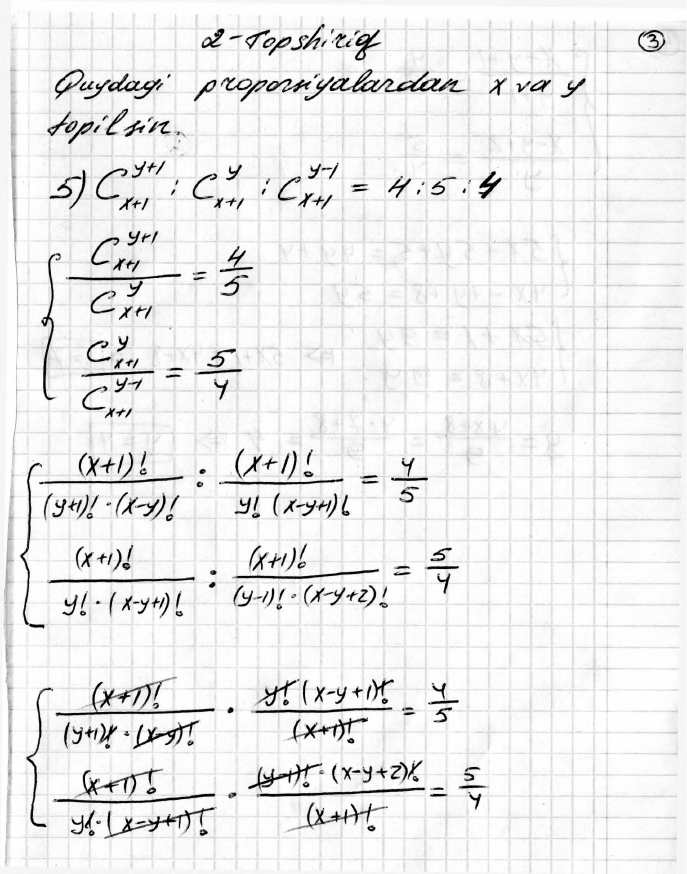 2-Topshiriq
③
Quydagi proporsiyalardan x va y
topilsin.
5) C_{x+1}^{y+1} : C_{x+1}^{y} : C_{x+1}^{y-1} = 4 : 5 : 4
{ C_{x+1}^{y+1} / C_{x+1}^{y} = 4/5
C_{x+1}^{y} / C_{x+1}^{y-1} = 5/4
{ (x+1)! / (y+1)! · (x-y)! : (x+1)! / y! (x-y+1)! = 4/5
(x+1)! / y! · (x-y+1)! : (x+1)! / (y-1)! · (x-y+2)! = 5/4
{ (x+1)! / (y+1)! · (x-y)! · y! (x-y+1)! / (x+1)! = 4/5
(x+1)! / y! · (x-y+1)! · (y-1)! · (x-y+2)! / (x+1)! = 5/4